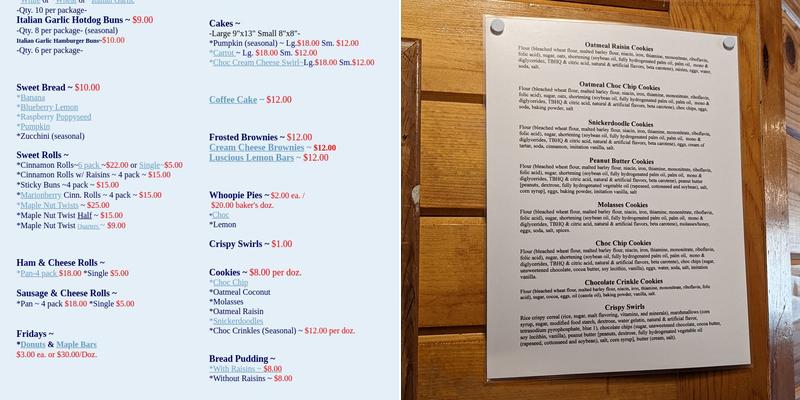 *White or *Wheat or *Italian Garlic
-Qty. 10 per package-
Italian Garlic Hotdog Buns ~ $9.00
-Qty. 8 per package- (seasonal)
Italian Garlic Hamburger Buns~$10.00
-Qty. 6 per package-
Sweet Bread ~ $10.00
*Banana
*Blueberry Lemon
*Raspberry Poppyseed
*Pumpkin
*Zucchini (seasonal)
Sweet Rolls ~
*Cinnamon Rolls~6 pack ~$22.00 or Single~$5.00
*Cinnamon Rolls w/ Raisins ~ 4 pack ~ $15.00
*Sticky Buns ~4 pack ~ $15.00
*Marionberry Cinn. Rolls ~ 4 pack ~ $15.00
*Maple Nut Twists ~ $25.00
*Maple Nut Twist Half ~ $15.00
*Maple Nut Twist Quarters ~ $9.00
Ham & Cheese Rolls ~
*Pan-4 pack $18.00 *Single $5.00
Sausage & Cheese Rolls ~
*Pan ~ 4 pack $18.00 *Single $5.00
Fridays ~
*Donuts & Maple Bars
$3.00 ea. or $30.00/Doz.
Cakes ~
-Large 9"x13" Small 8"x8"-
*Pumpkin (seasonal) ~ Lg.$18.00 Sm. $12.00
*Carrot ~ Lg. $18.00 Sm. $12.00
*Choc Cream Cheese Swirl~Lg.$18.00 Sm.$12.00
Coffee Cake ~ $12.00
Frosted Brownies ~ $12.00
Cream Cheese Brownies ~ $12.00
Luscious Lemon Bars ~ $12.00
Whoopie Pies ~ $2.00 ea. /
$20.00 baker's doz.
*Choc
*Lemon
Crispy Swirls ~ $1.00
Cookies ~ $8.00 per doz.
*Choc Chip
*Oatmeal Coconut
*Molasses
*Oatmeal Raisin
*Snickerdoodles
*Choc Crinkles (Seasonal) ~ $12.00 per doz.
Bread Pudding ~
*With Raisins ~ $8.00
*Without Raisins ~ $8.00
Oatmeal Raisin Cookies
Flour (bleached wheat flour, malted barley flour, niacin, iron, thiamine, mononitrate, riboflavin,
folic acid), sugar, oats, shortening (soybean oil, fully hydrogenated palm oil, palm oil, mono &
diglycerides, TBHQ & citric acid, natural & artificial flavors, beta carotene), raisins, eggs, water,
soda, salt.
Oatmeal Choc Chip Cookies
Flour (bleached wheat flour, malted barley flour, niacin, iron, thiamine, mononitrate, riboflavin,
folic acid), sugar, oats, shortening (soybean oil, fully hydrogenated palm oil, palm oil, mono &
diglycerides, TBHQ & citric acid, natural & artificial flavors, beta carotene), choc chips, eggs,
soda, baking powder, salt
Snickerdoodle Cookies
Flour (bleached wheat flour, malted barley flour, niacin, iron, thiamine, mononitrate, riboflavin,
folic acid), sugar, shortening (soybean oil, fully hydrogenated palm oil, palm oil, mono &
diglycerides, TBHQ & citric acid, natural & artificial flavors, beta carotene), eggs, cream of
tartar, soda, cinnamon, imitation vanilla, salt.
Peanut Butter Cookies
Flour (bleached wheat flour, malted barley flour, niacin, iron, thiamine, mononitrate, riboflavin,
folic acid), sugar, shortening (soybean oil, fully hydrogenated palm oil, palm oil, mono &
diglycerides, TBHQ & citric acid, natural & artificial flavors, beta carotene), peanut butter
[peanuts, dextrose, fully hydrogenated vegetable oil (rapeseed, cottonseed and soybean), salt,
corn syrup], eggs, baking powder, imitation vanilla, salt
Molasses Cookies
Flour (bleached wheat flour, malted barley flour, niacin, iron, thiamine, mononitrate, riboflavin,
folic acid), sugar, shortening (soybean oil, fully hydrogenated palm oil, palm oil, mono &
diglycerides, TBHQ & citric acid, natural & artificial flavors, beta carotene), molasses/honey,
eggs, soda, salt, spices.
Choc Chip Cookies
Flour (bleached wheat flour, malted barley flour, niacin, iron, thiamine, mononitrate, riboflavin,
folic acid), sugar, shortening (soybean oil, fully hydrogenated palm oil, palm oil, mono &
diglycerides, TBHQ & citric acid, natural & artificial flavors, beta carotene), choc chips (sugar,
unsweetened chocolate, cocoa butter, soy lecithin, vanilla), eggs, water, soda, salt, imitation
vanilla.
Chocolate Crinkle Cookies
Flour (bleached wheat flour, malted barley flour, niacin, iron, thiamine, mononitrate, riboflavin, folic
acid), sugar, cocoa, eggs, oil (canola oil), baking powder, vanilla, salt.
Crispy Swirls
Rice crispy cereal (rice, sugar, malt flavoring, vitamins, and minerals), marshmallows (corn
syrup, sugar, modified food starch, dextrose, water gelatin, natural & artificial flavor,
tetrasodium pyrophosphate, blue 1), chocolate chips (sugar, unsweetened chocolate, cocoa butter,
soy lecithin, vanilla), peanut butter [peanuts, dextrose, fully hydrogenated vegetable oil
(rapeseed, cottonseed and soybean), salt, corn syrup], butter (cream, salt).